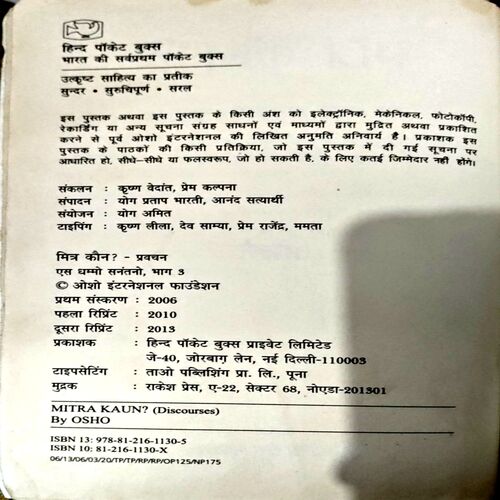 हिन्द पॉकेट बुक्स
भारत की सर्वप्रथम पॉकेट बुक्स
उत्कृष्ट साहित्य का प्रतीक
सुन्दर • सुरुचिपूर्ण • सरल
इस पुस्तक अथवा इस पुस्तक के किसी अंश को इलेक्ट्रॉनिक, मेकेनिकल, फोटोकॉपी,
रेकार्डिंग या अन्य सूचना संग्रह साधनों एवं माध्यमों द्वारा मुद्रित अथवा प्रकाशित
करने से पूर्व ओशो इंटरनेशनल की लिखित अनुमति अनिवार्य है। प्रकाशक इस
पुस्तक के पाठकों की किसी प्रतिक्रिया, जो इस पुस्तक में दी गई सूचना पर
आधारित हो, सीधे-सीधे या फलस्वरूप, जो हो सकती है, के लिए कतई जिम्मेदार नहीं होंगे।
संकलन : कृष्ण वेदांत, प्रेम कल्पना
संपादन : योग प्रताप भारती, आनंद सत्यार्थी
संयोजन : योग अमित
टाइपिंग : कृष्ण लीला, देव साम्या, प्रेम राजेंद्र, ममता
मित्र कौन? - प्रवचन
एस धम्मो सनंतनो, भाग 3
© ओशो इंटरनेशनल फाउंडेशन
प्रथम संस्करण : 2006
पहला रिप्रिंट : 2010
दूसरा रिप्रिंट : 2013
प्रकाशक : हिन्द पॉकेट बुक्स प्राइवेट लिमिटेड
जे-40, जोरबाग़ लेन, नई दिल्ली-110003
टाइपसेटिंग : ताओ पब्लिशिंग प्रा. लि., पूना
मुद्रक : राकेश प्रेस, ए-22, सेक्टर 68, नोएडा-201301
MITRA KAUN? (Discourses)
By OSHO
ISBN 13: 978-81-216-1130-5
ISBN 10: 81-216-1130-X
06/13/06/03/20/TP/TP/RP/RP/OP125/NP175